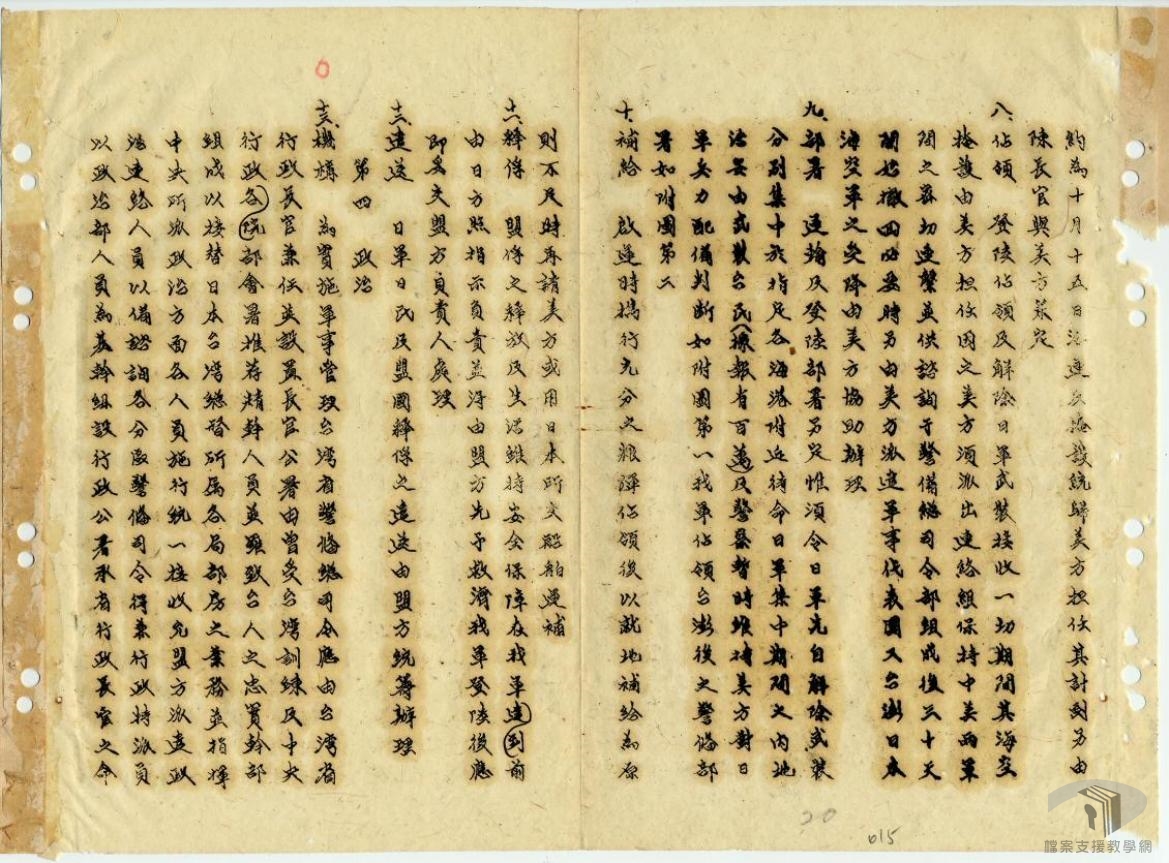 約為十月十五日浴進及海設統歸美方担任其計劃另由
陳長官與美方策定
八、佔領　登陸佔領及解除日軍武裝接收一切期間其海空
掩護由美方担任因之美方須派出連絡組保持中美兩軍
間之密切連繫並供諮詢于警備總司令部組成後三十天
開始撤回必要時另由美方派遣軍事代表團又台澎日本
海空軍之受降由美方協助辦理
九、部署　運輸及登陸部署另定惟須令日軍先自解除武裝
分別集中於指定各海港附近待命日軍集中期間之內地
治安由武裝台民(據報有百萬)及警察暫時維持美方對日
軍兵力配備判斷如附圖第一我軍佔領台澎後之警備部
署如附圖第二
十、補給　啟運時攜行充分之糧彈佔領後以就地補給為原
則不足時再請美方或用日本所交船舶運補
十一、釋俘　盟俘之釋放及生活維持安全保障在我軍達到前
由日方照指示負責並得由盟方先予救濟我軍登陸後應
即交盟方負責人處理
十二、遣送　日軍日民及盟國釋俘之遣送由盟方統籌辦理
第四　政治
十三、機構　為實施軍事管理台灣省警備總司令應由台灣省
行政長官兼任並設置長官公署由曾受台灣訓練及中央
行政各院部會署推荐精幹人員並羅致台人之忠實幹部
組成以接替日本台灣總督所屬各局部房之業務並指揮
中央所派政治方面各人員施行統一接收先盟方派遣政
治連絡人員以備諮詢各分區警備司令得兼行政特派員
以政治部人員為基幹組設行政公署承省行政長官之命
20
015
檔案支援教學網